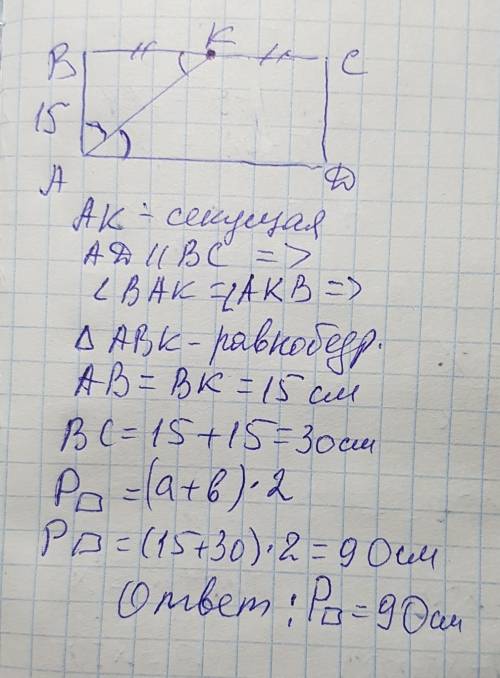 B K C
15
A D
AK - секущая
AD || BC =>
∠BAK = ∠AKB =>
Δ ABK - равнобедр.
AB = BK = 15 см
BC = 15 + 15 = 30 см
P▭ = (a + b) · 2
P▭ = (15+30) · 2 = 90 см
Ответ : P▭ = 90 см